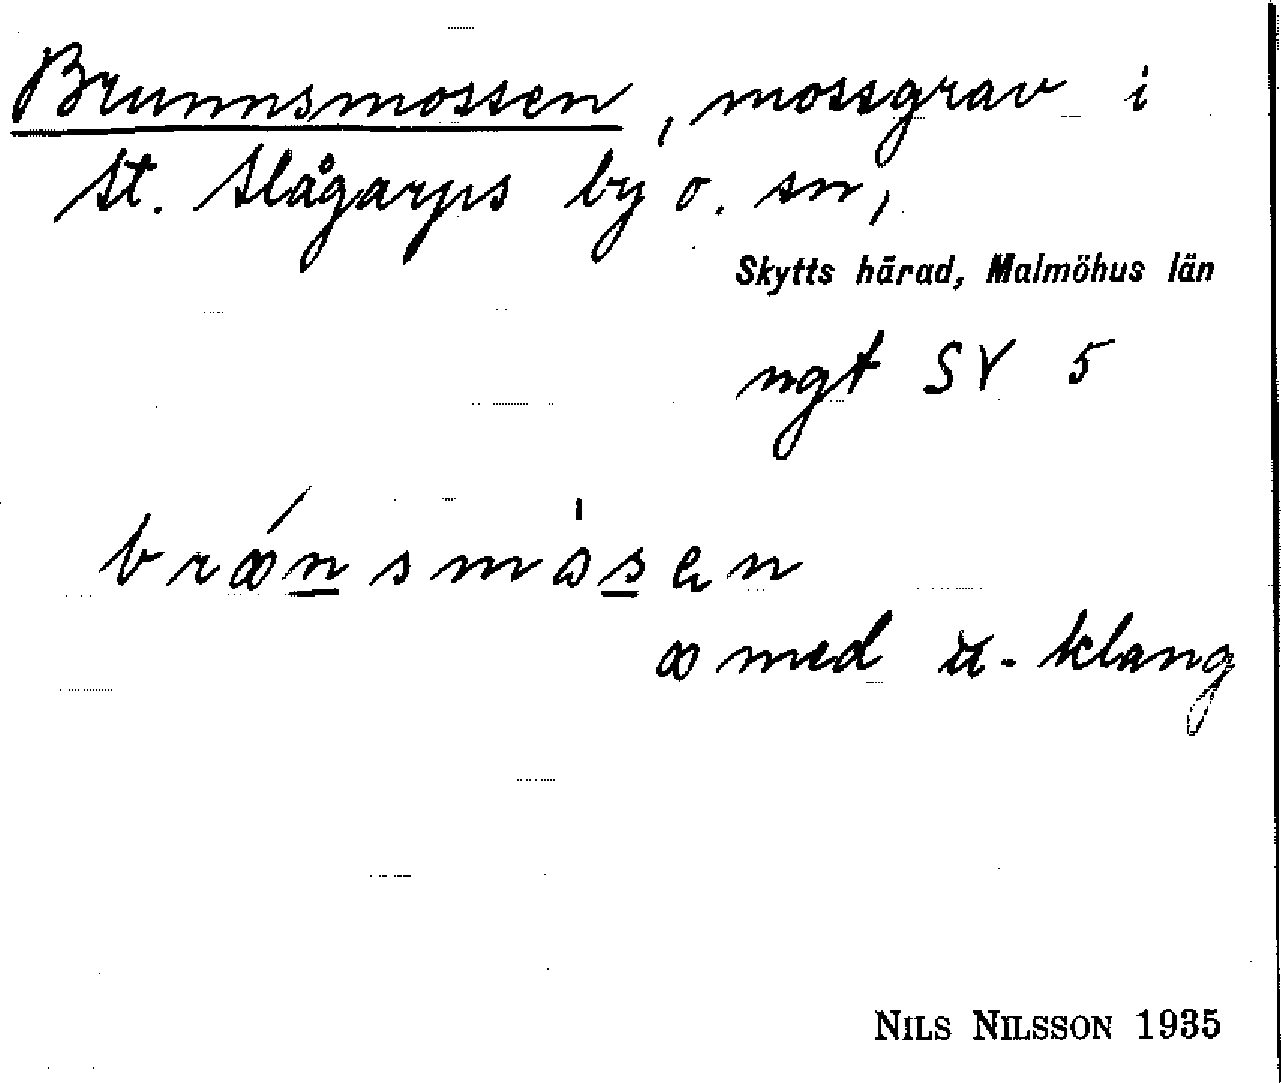 Brunnsmossen, mossgrav i
St. Slågarps by o. sn,
Skytts härad, Malmöhus län
ngt SV 5
med -klang
NILS NILSSON 1935